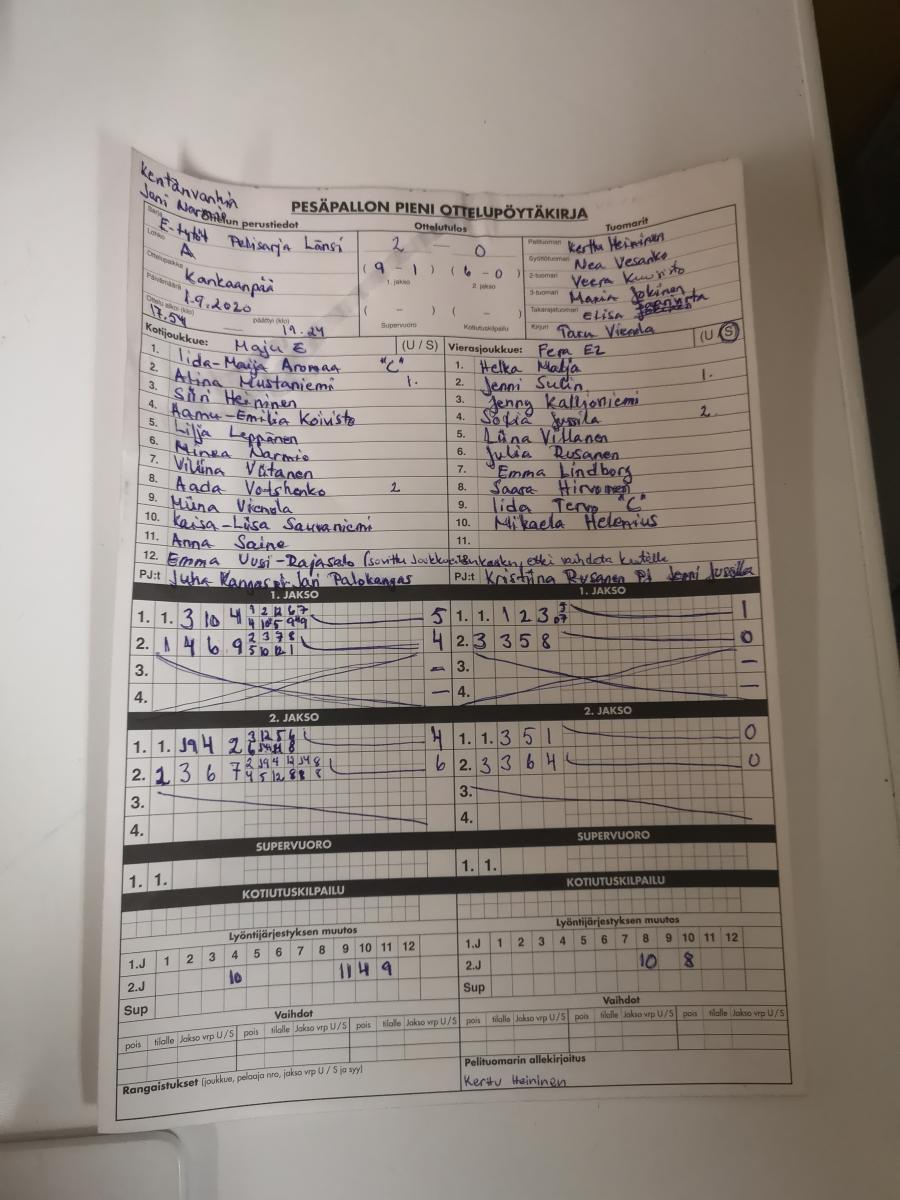 Kentänvanhin
Jani Narmio
PESÄPALLON PIENI OTTELUPÖYTÄKIRJA
Ottelun perustiedot Ottelutulos Tuomarit
Sarja E-tytöt Pelisarja Länsi 2 — 0 Pelituomari Kerttu Heininen
Lohko A (9 - 1) (6 - 0) Syöttötuomari Nea Vesanko
Ottelupaikka Kankaanpää 1. jakso 2. jakso 2-tuomari Veera
Päivämäärä 1.9.2020 ( - ) ( - ) 3-tuomari Maria Jokinen
Ottelu alkoi (klo) 17.54 — päättyi (klo) 19.24 Supervuoro Kotiutuskilpailu Takarajatuomari Elisa
Kirjuri Taru Vienola
Kotijoukkue: Maju E (U / S) Vierasjoukkue: Fera E2 (U / S)
1. Iida-Maija Aromaa "C" 1. Helka Malja
2. Alina Mustaniemi 1. 2. Jenni Sulin 1.
3. Siiri Heininen 3. Jenny Kallioniemi
4. Aamu-Emilia Koivisto 4. Sofia Jussila 2.
5. Lilja Leppänen 5. Liina Villanen
6. Minea Narmio 6. Julia Rusanen
7. Viliina Viitanen 7. Emma Lindborg
8. Aada Votshenko 2 8. Saara Hirvonen
9. Miina Vienola 9. Iida Tervo "C"
10. Kaisa-Liisa Sauvaniemi 10. Mikaela Helenius
11. Anna Saine 11.
12. Emma Uusi-Rajasalo
PJ:t Juha Kangas Jari Palokangas PJ:t Kristiina Rusanen PJ Jenni Jussila
1. JAKSO 1. JAKSO
1. 1. 3 10 4 5 1. 1. 1 2 3 1
2. 1 4 6 9 4 2. 3 3 5 8 0
3. — 3. —
4. — 4. —
2. JAKSO 2. JAKSO
1. 1. 4 2 4 1. 1. 3 5 1 0
2. 3 6 7 6 2. 3 3 6 4 0
3. 3.
4. 4.
SUPERVUORO SUPERVUORO
1. 1. 1. 1.
KOTIUTUSKILPAILU KOTIUTUSKILPAILU
Lyöntijärjestyksen muutos Lyöntijärjestyksen muutos
1.J 1 2 3 4 5 6 7 8 9 10 11 12 1.J 1 2 3 4 5 6 7 8 9 10 11 12
2.J 10 11 4 9 2.J 10 8
Sup Sup
Vaihdot Vaihdot
pois tilalle Jakso vrp U / S pois tilalle Jakso vrp U / S pois tilalle Jakso vrp U / S pois tilalle Jakso vrp U / S pois tilalle Jakso vrp U / S pois tilalle Jakso vrp U / S
Rangaistukset (joukkue, pelaaja nro, jakso vrp U / S ja syy) Pelituomarin allekirjoitus
Kerttu Heininen